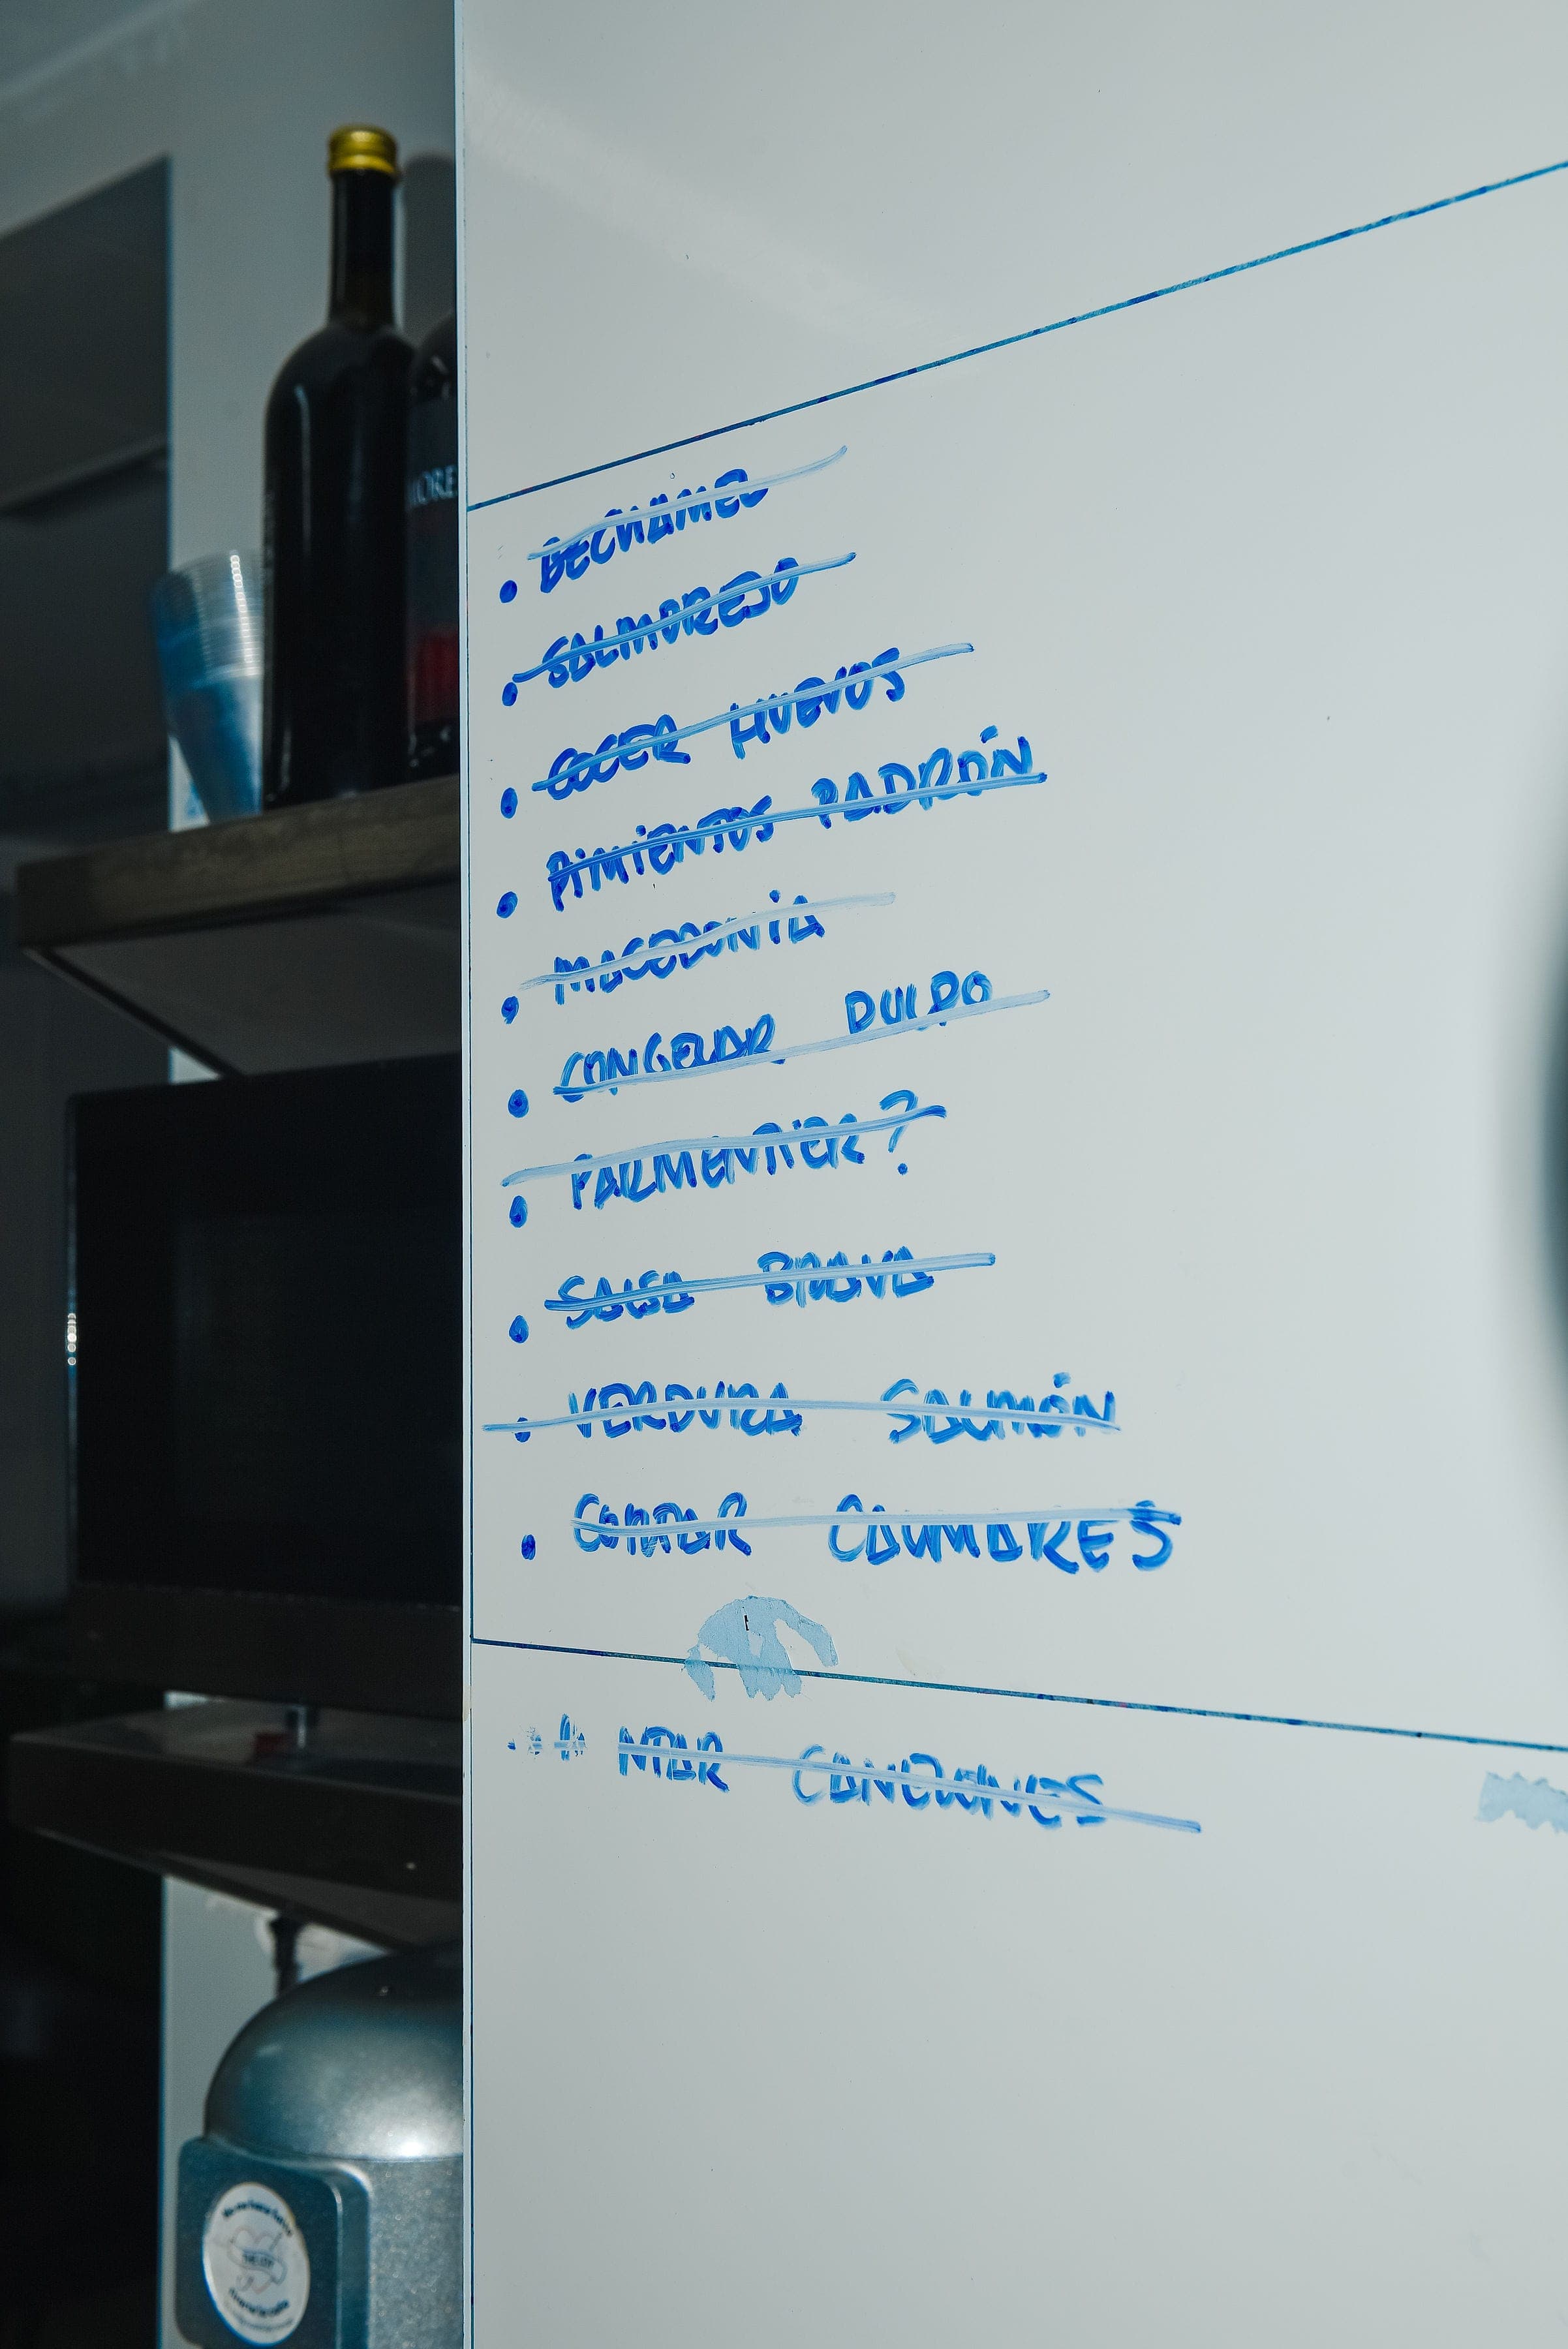 MORE
• BECHAMEL
• SALMOREJO
• COCER HUEVOS
• PIMIENTOS PADRÓN
• MACEDONIA
• CONGELAR PULPO
• PARMENTIER?
• SALSA BRAVA
• VERDURA SALMÓN
• CORTAR CALAMARES
CANELONES